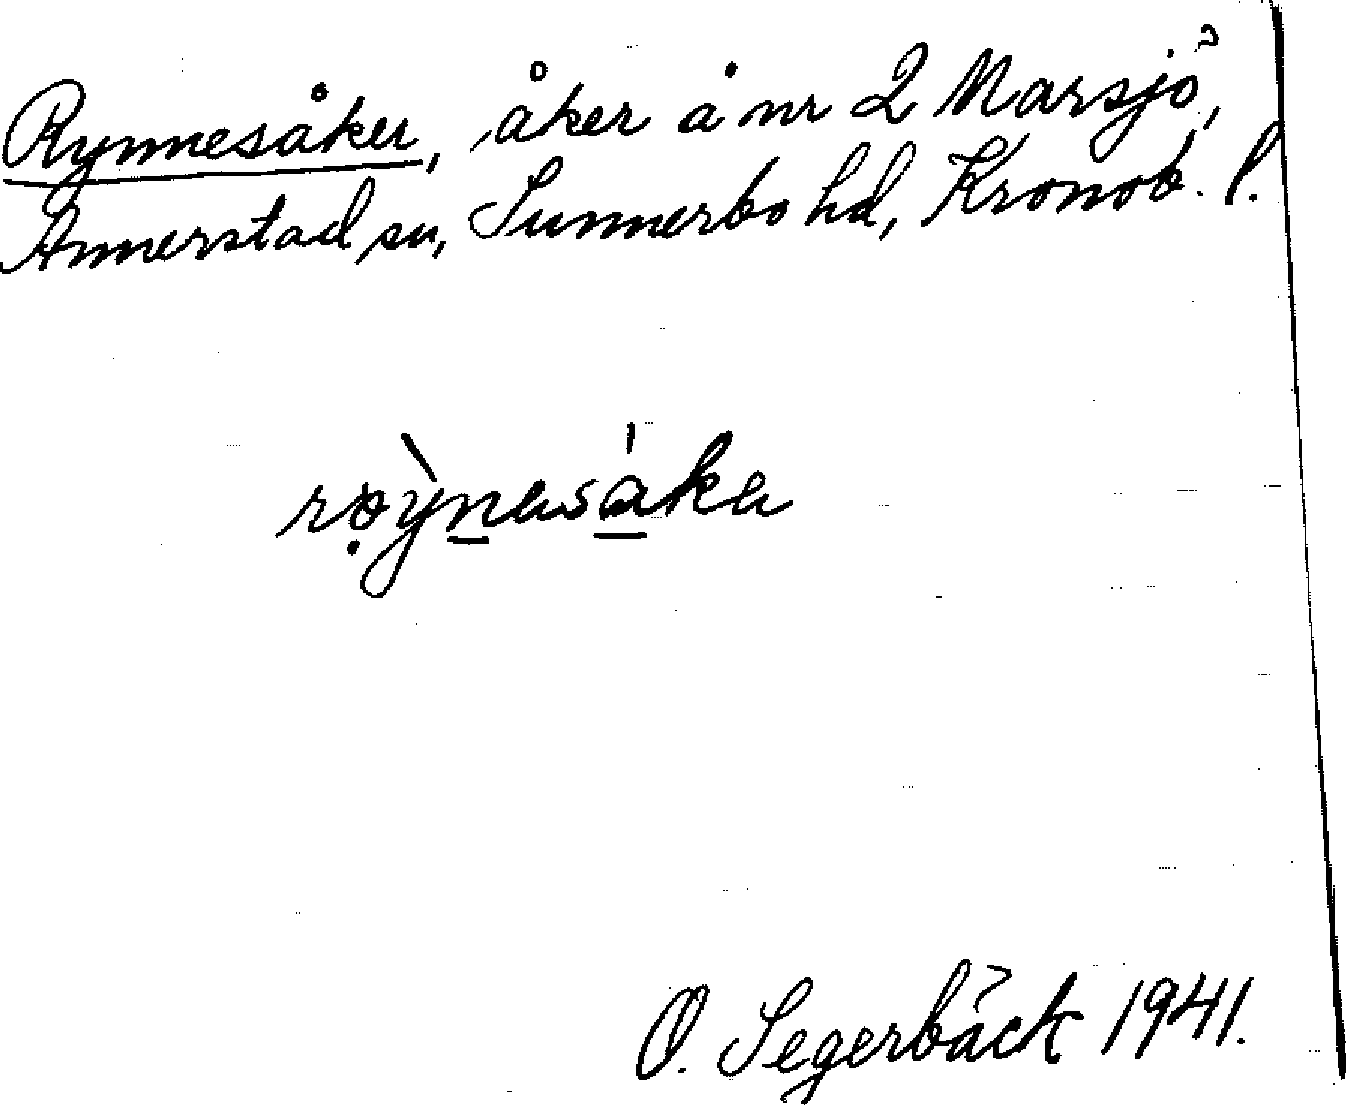 Rynnesåker, åker å nr 2 Marsjö,
Annerstad sn, Sunnerbo hd, Kronob. l.
røỳnɐsákɐ
O. Segerbäck 1941.